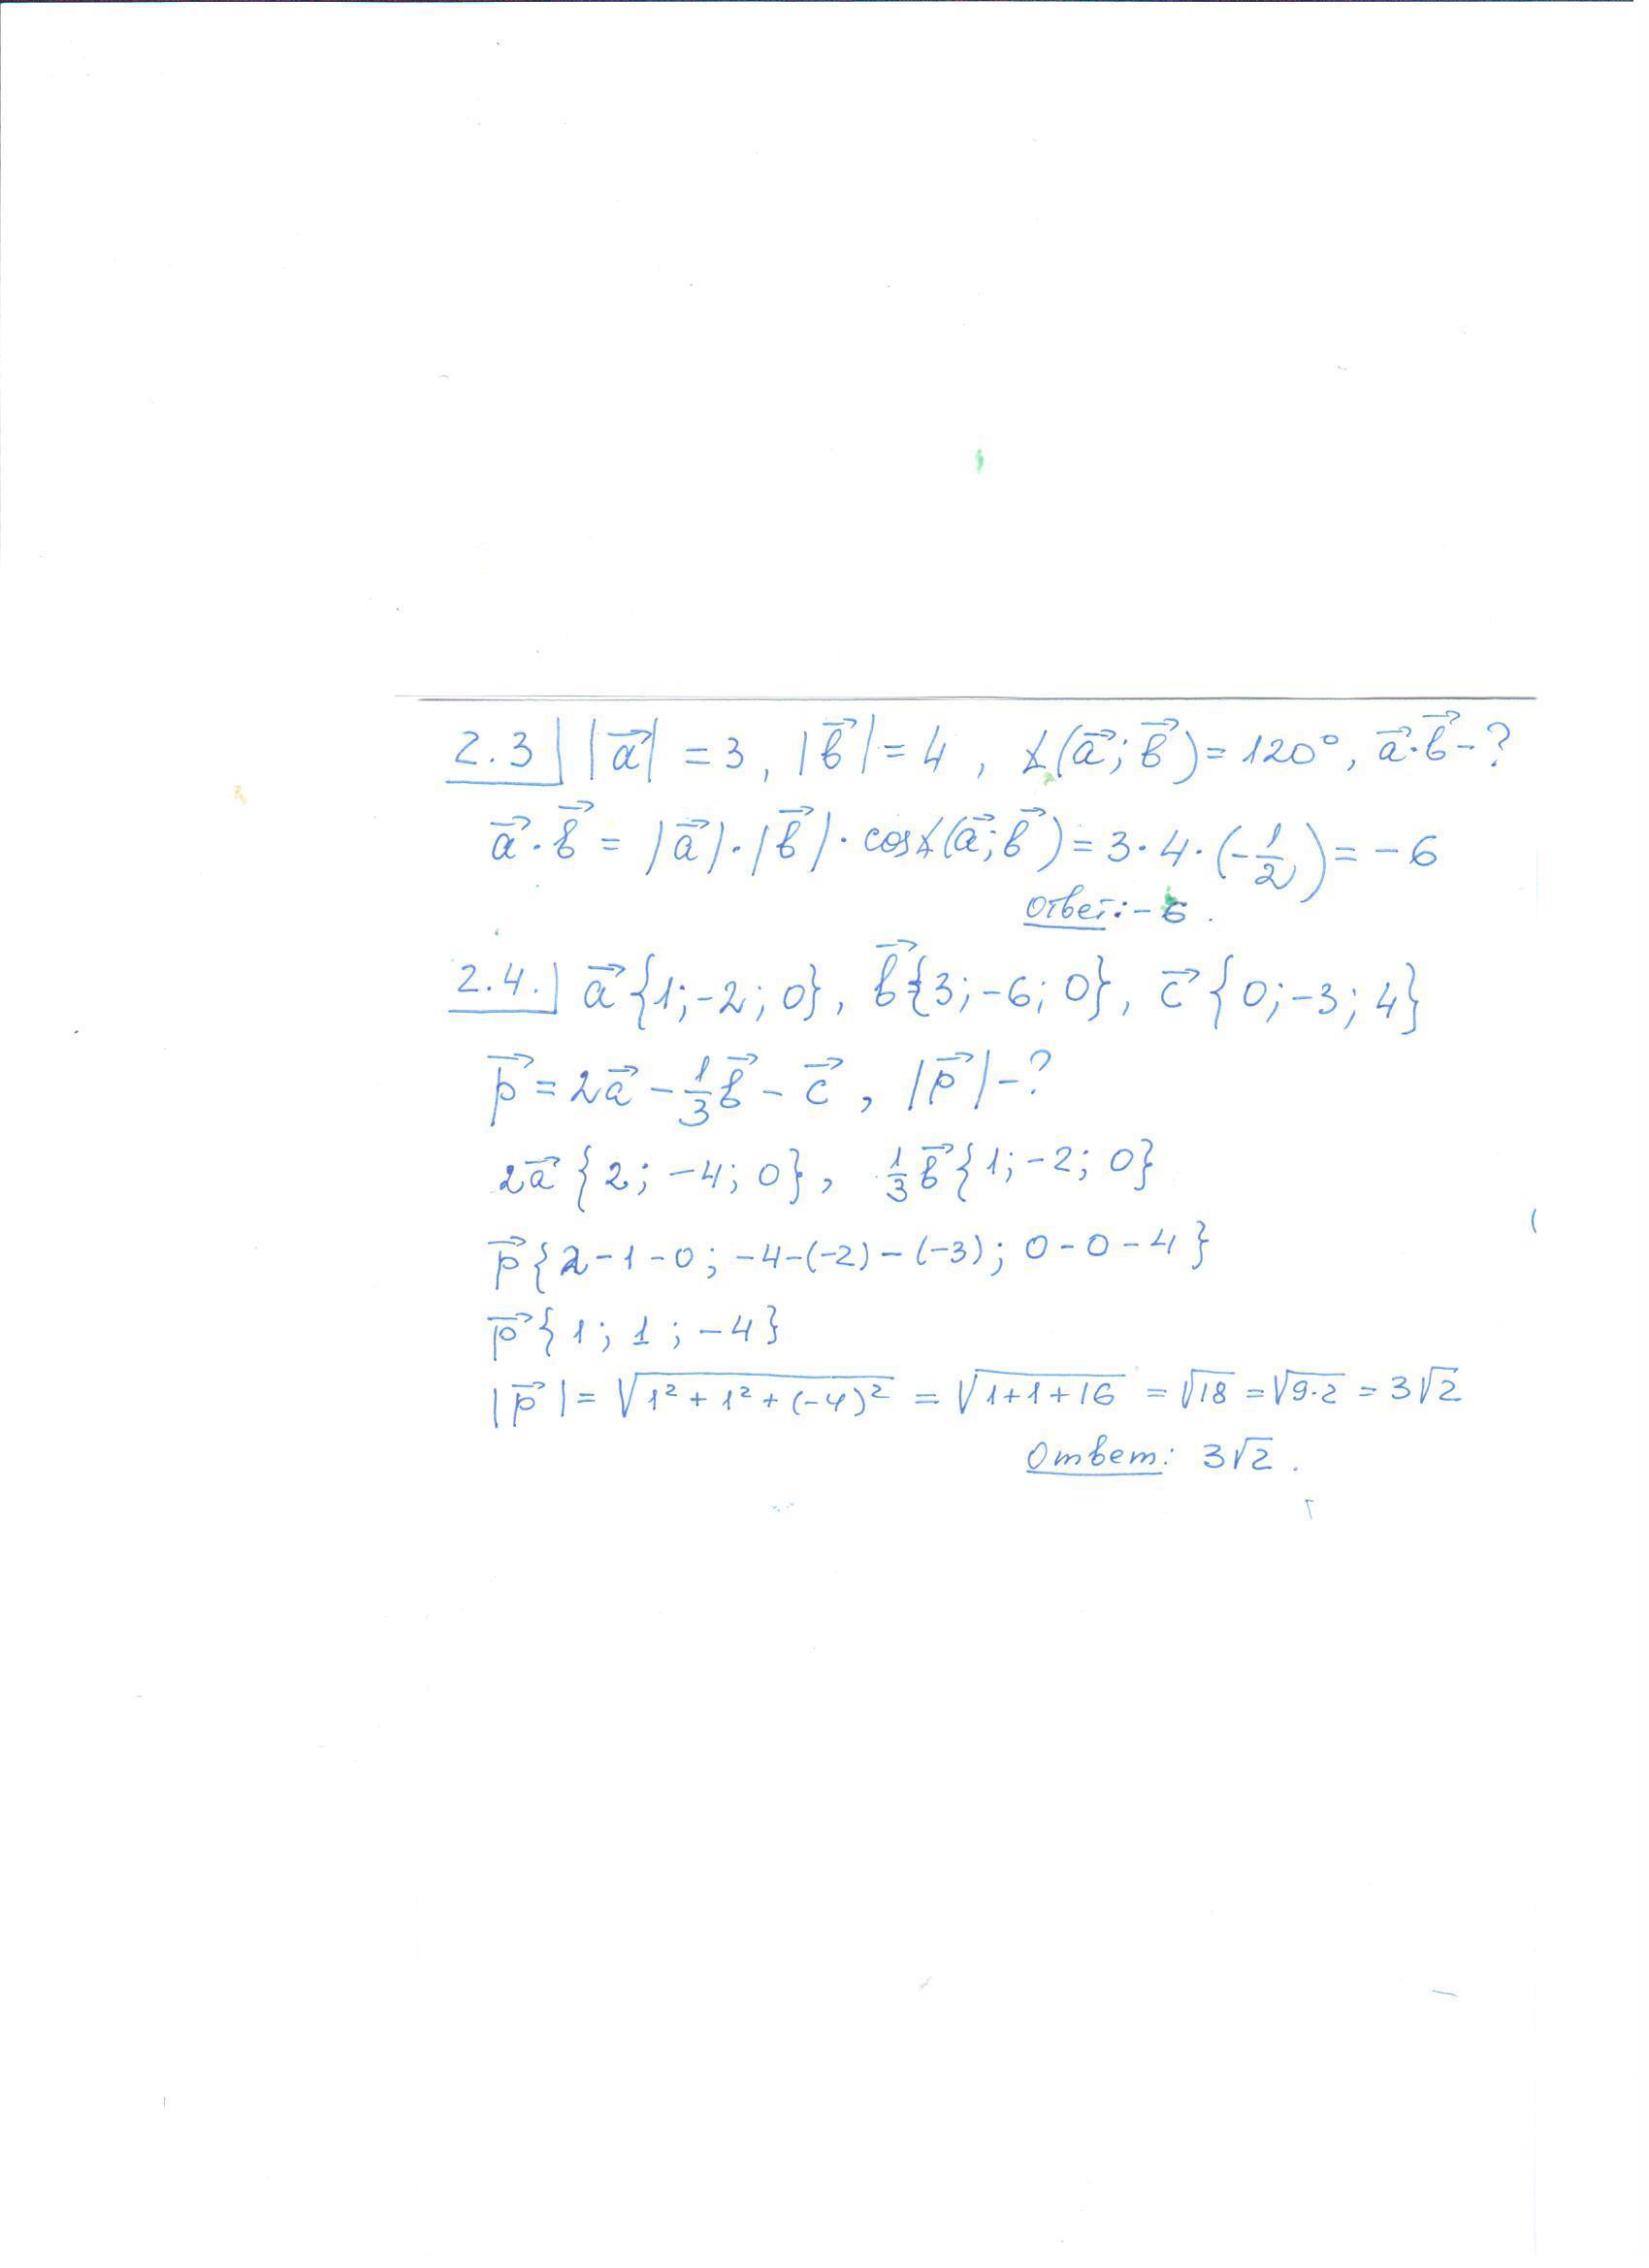 2.3 |a⃗| = 3, |b⃗| = 4, ∡(a⃗; b⃗) = 120°, a⃗·b⃗ - ?
a⃗·b⃗ = |a⃗|·|b⃗|·cos∡(a⃗; b⃗) = 3·4·(-1/2) = -6
Ответ: -6.
2.4. a⃗{1; -2; 0}, b⃗{3; -6; 0}, c⃗{0; -3; 4}
p⃗ = 2a⃗ - 1/3 b⃗ - c⃗, |p⃗| - ?
2a⃗{2; -4; 0}, 1/3 b⃗{1; -2; 0}
p⃗{2-1-0; -4-(-2)-(-3); 0-0-4}
p⃗{1; 1; -4}
|p⃗| = √(1² + 1² + (-4)²) = √(1+1+16) = √18 = √(9·2) = 3√2
Ответ: 3√2.